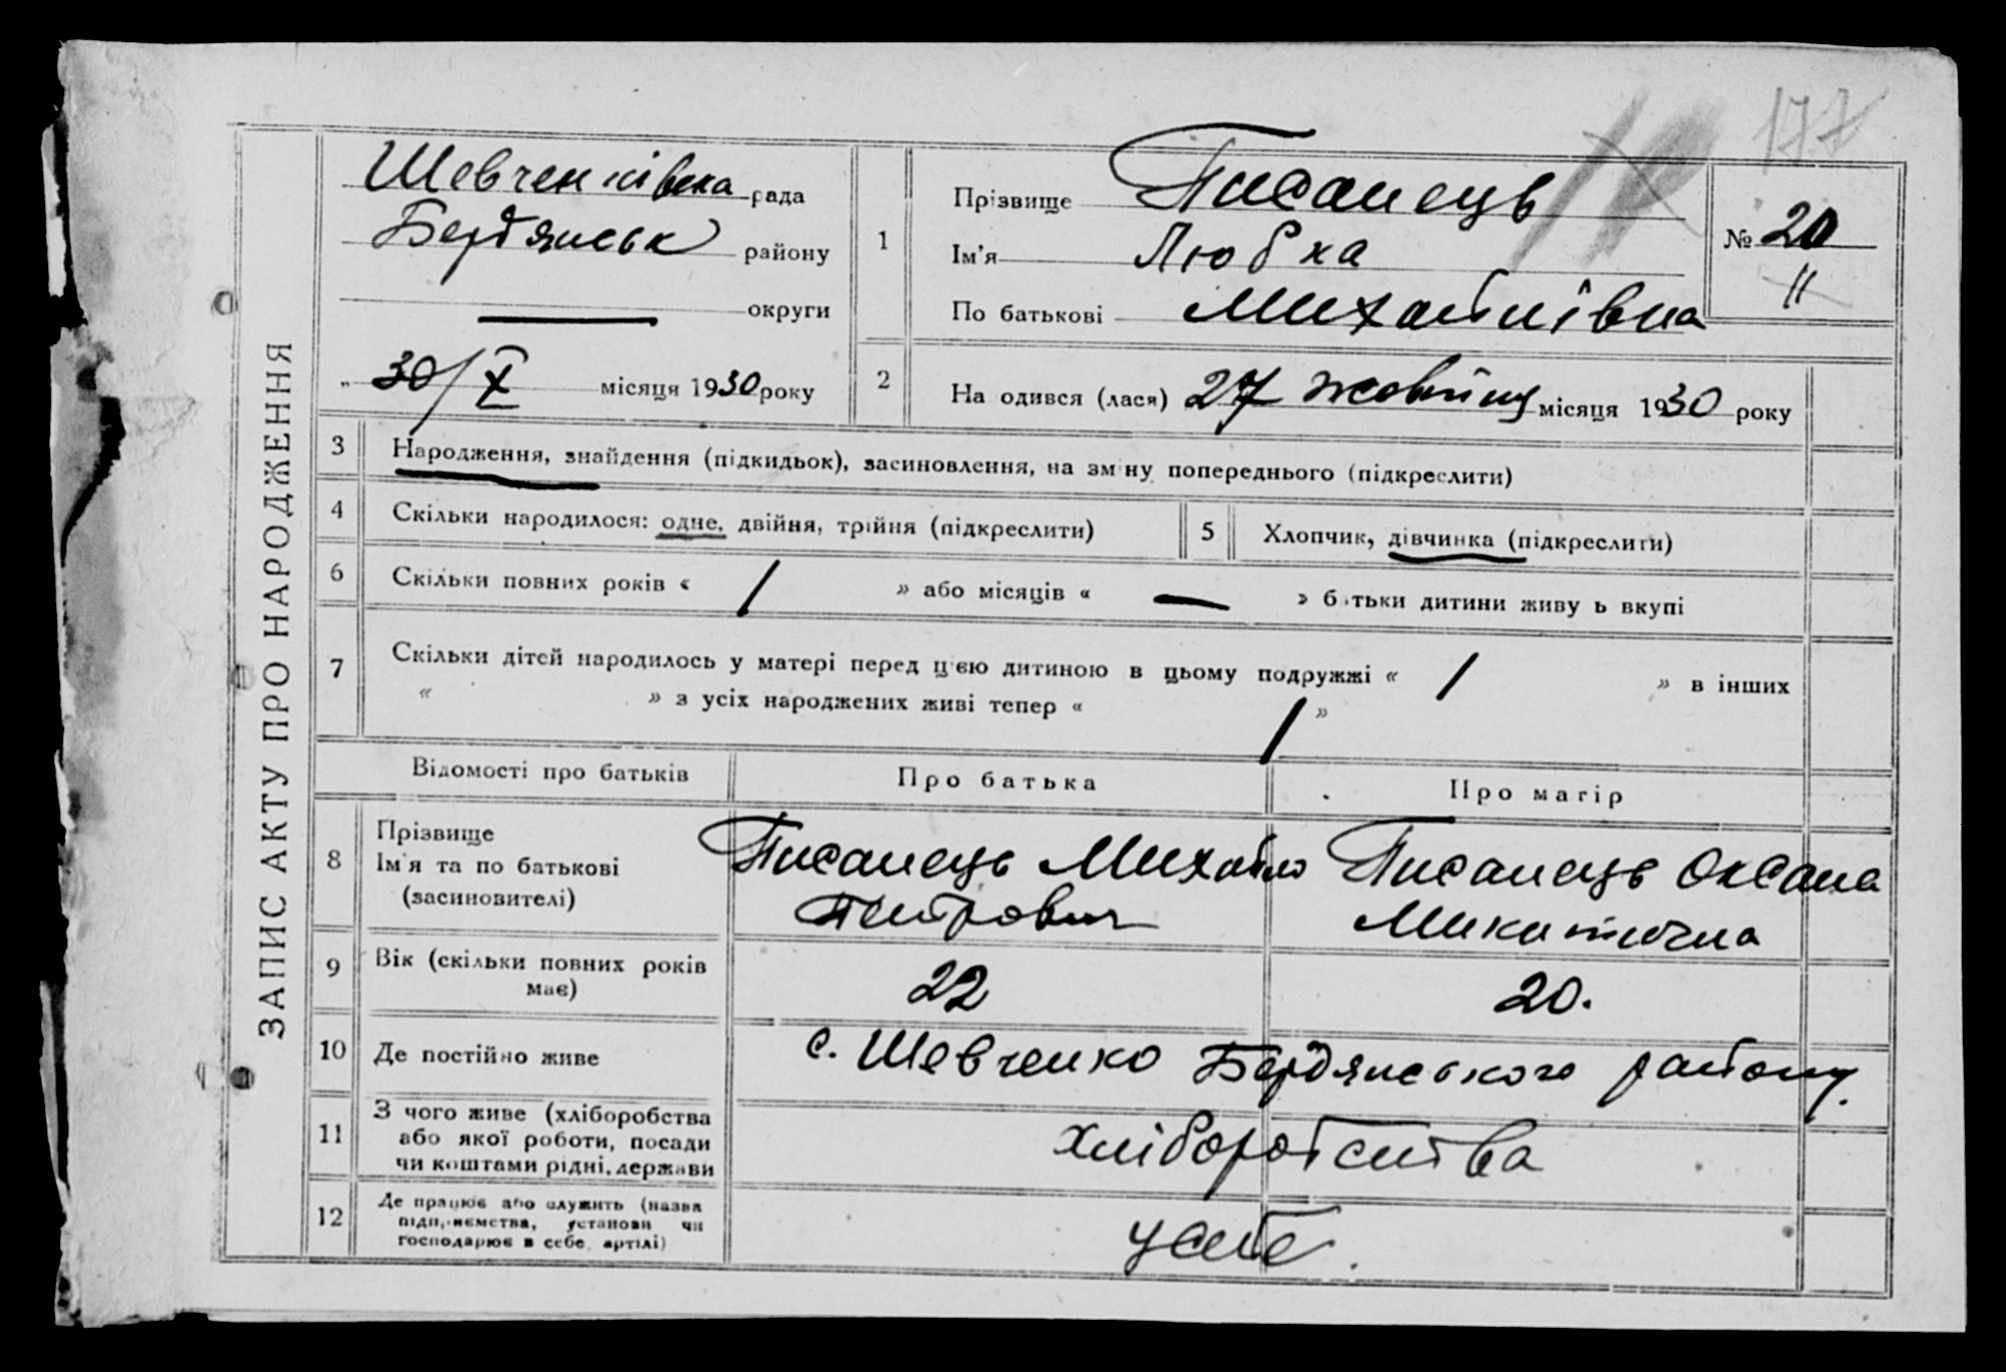 177
Шевченківська рада
Бердянськ району
округи
„ 30/X місяця 1930 року
1
Прізвище Писанець
Ім'я Любха
По батькові Михайлівна
№ 20
11
2
На одився (лася) 27 жовтня місяця 1930 року
ЗАПИС АКТУ ПРО НАРОДЖЕННЯ
3 Народження, знайдення (підкидьок), засиновлення, на зм ну попереднього (підкреслити)
4 Скільки народилося: одне, двійня, трійня (підкреслити)
5 Хлопчик, дівчинка (підкреслити)
6 Скільки повних років « / » або місяців « — » б тьки дитини живу ь вкупі
7 Скільки дітей народилось у матері перед ц єю дитиною в цьому подружжі « / » в інших
« » з усіх народжених живі тепер « / »
Відомості про батьків Про батька Про матір
8 Прізвище
Ім'я та по батькові
(засиновителі)
Писанець Михайло
Питрович
Писанець Оксана
Микитична
9 Вік (скільки повних років
має)
22 20.
10 Де постійно живе с. Шевченко Бердянського району.
11 З чого живе (хліборобства
або якої роботи, посади
чи коштами рідні, держави
хліборобства
12 Де працює або служить (назва
підп, иємства, установи чи
господарює в себе, артілі)
усебе.